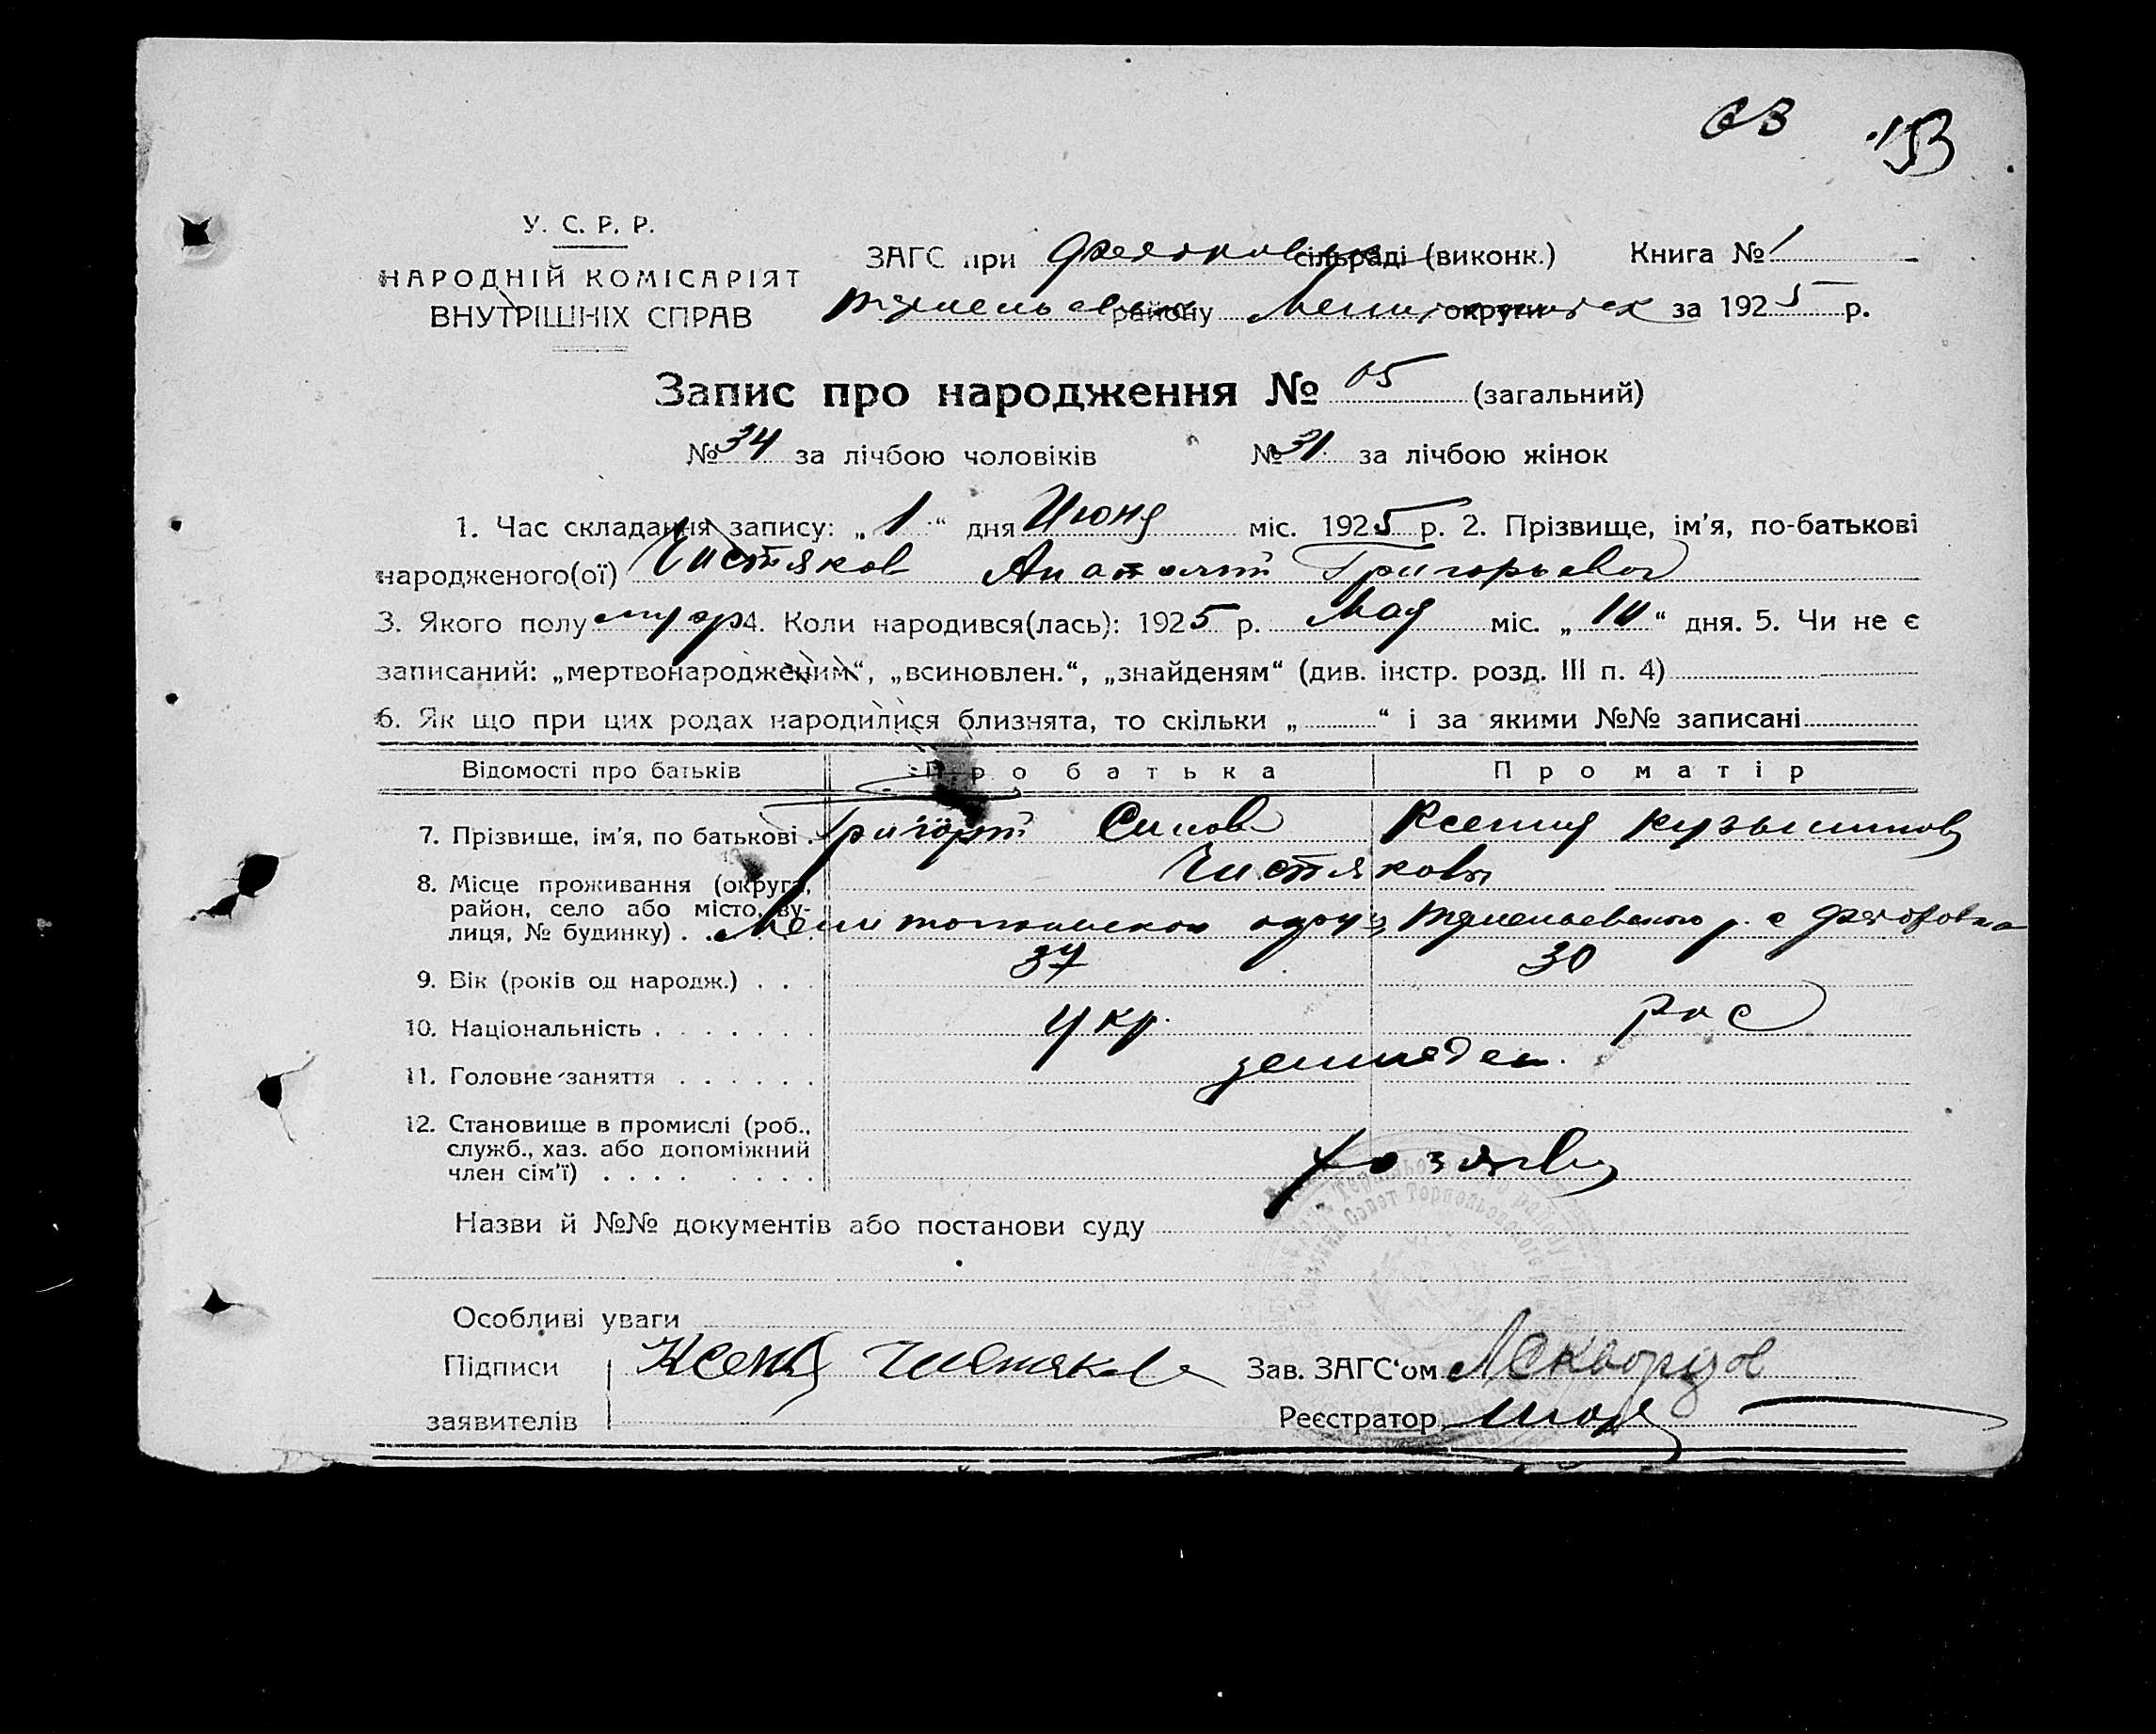 153
У. С. Р. Р.
НАРОДНІЙ КОМІСАРІЯТ
ВНУТРІШНІХ СПРАВ
ЗАГС при сільраді (виконк.) Книга № 1
району округи за 1925 р.
Запис про народження № 65 (загальний)
№ 34 за лічбою чоловіків № 31 за лічбою жінок
1. Час складання запису: „1“ дня Июня міс. 1925 р. 2. Прізвище, ім'я, по-батькові
народженого(ої) Чистяков Анатолий Григорьевич
3. Якого полу муж 4. Коли народився(лась): 1925 р. Мая міс. „10“ дня. 5. Чи не є
записаний: „мертвонародженим“, „всиновлен.“, „знайденям“ (див. інстр. розд. III п. 4)
6. Як що при цих родах народилися близнята, то скільки „ “ і за якими №№ записані
Відомості про батьків Про батька Про матір
7. Прізвище, ім'я, по батькові . Григорий Ксения Кузьминов
Чистяковы
8. Місце проживання (округа,
район, село або місто, ву-
лиця, № будинку) . . Мелитопольского округ р. с Федоровка
9. Вік (років од народж.) . . . 37 30
10. Національність . . . . . . . укр. рос
11. Головне заняття . . . . . . земледел.
12. Становище в промислі (роб.,
служб., хаз. або допоміжний
член сім'ї) . . . . . . . . хозяева
Назви й №№ документів або постанови суду
Особливі уваги
Підписи Ксения Чистякова Зав. ЗАГС'ом
заявителів Реєстратор